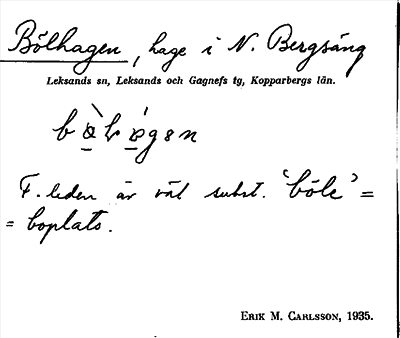 Bölhagen, hage i N. Bergsäng
Leksands sn, Leksands och Gagnefs tg, Kopparbergs län.
F. leden är väl subst. 'böle' =
= boplats.
ERIK M. CARLSSON, 1935.